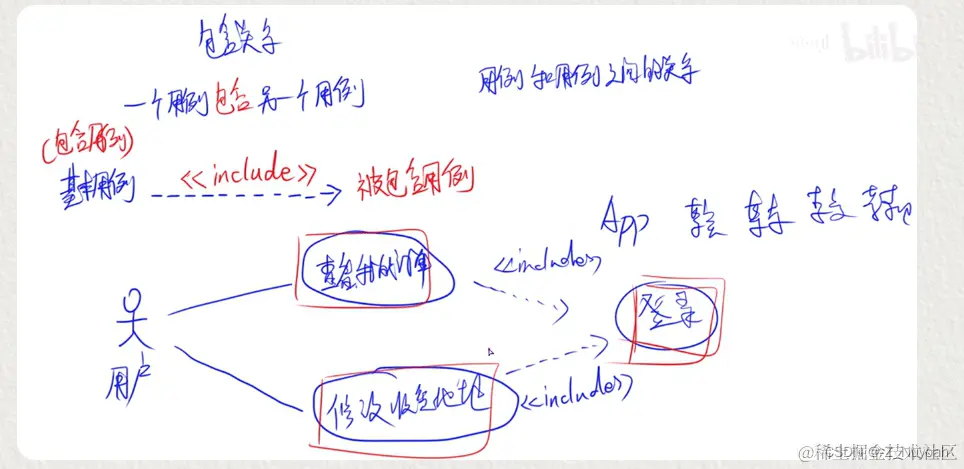 包含关系
一个用例包含另一个用例
用例和用例之间的关系
(包含用例)
基本用例
<<include>>
被包含用例
App
查看我的订单
<<include>>
登录
用户
修改收货地址
<<include>>
bilib
@稀土掘金技术社区